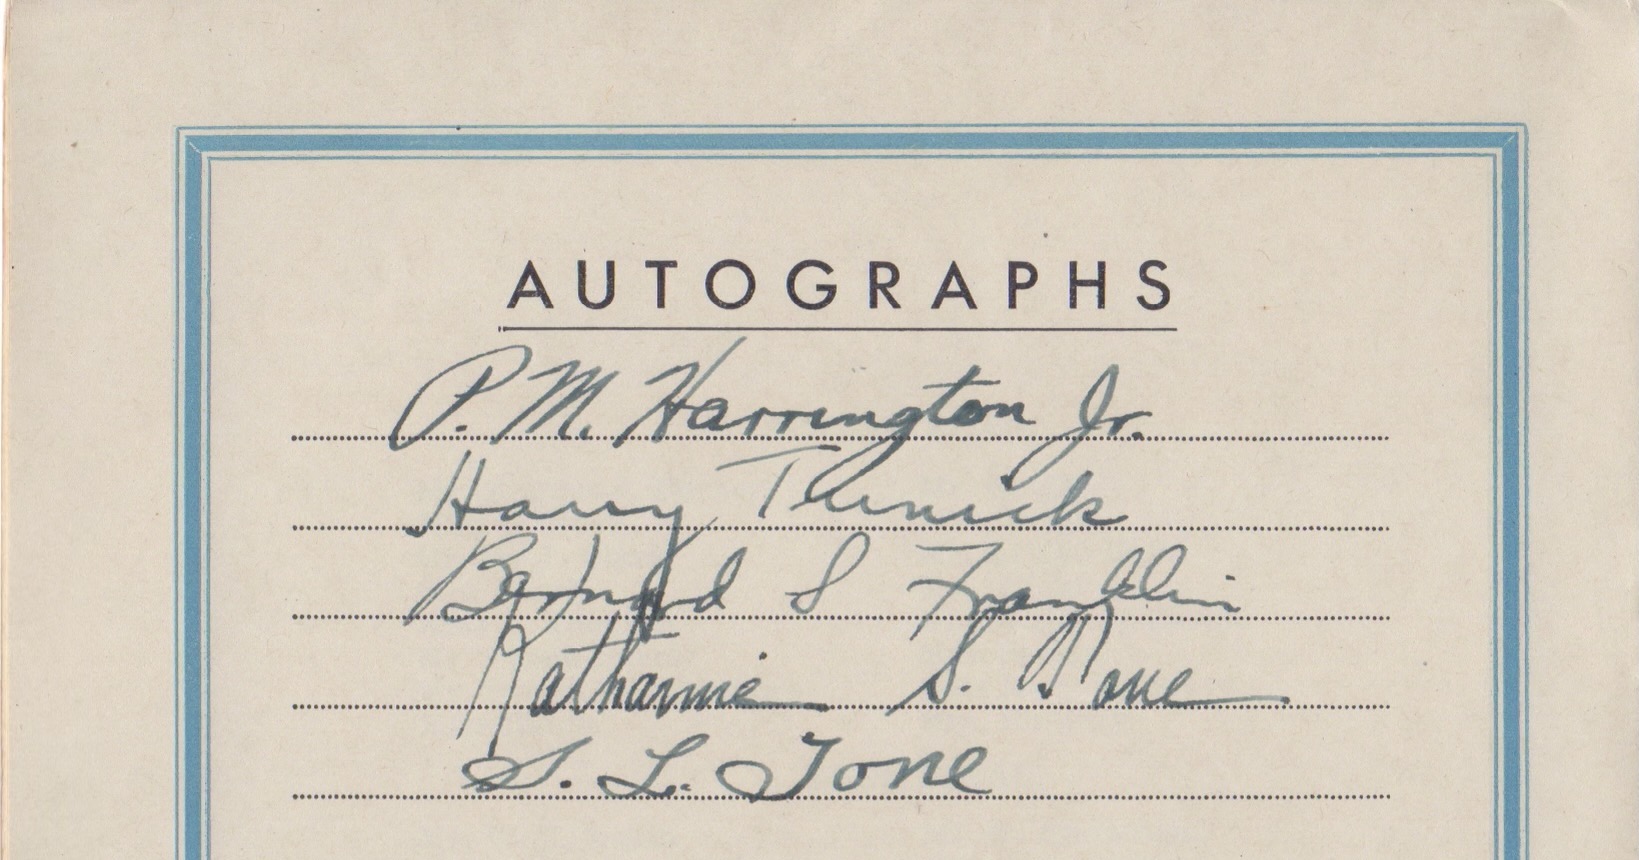 AUTOGRAPHS
P. M. Harrington Jr.
Harry
Bernard S Franklin
Katharine S. Tone
S. L. Tone